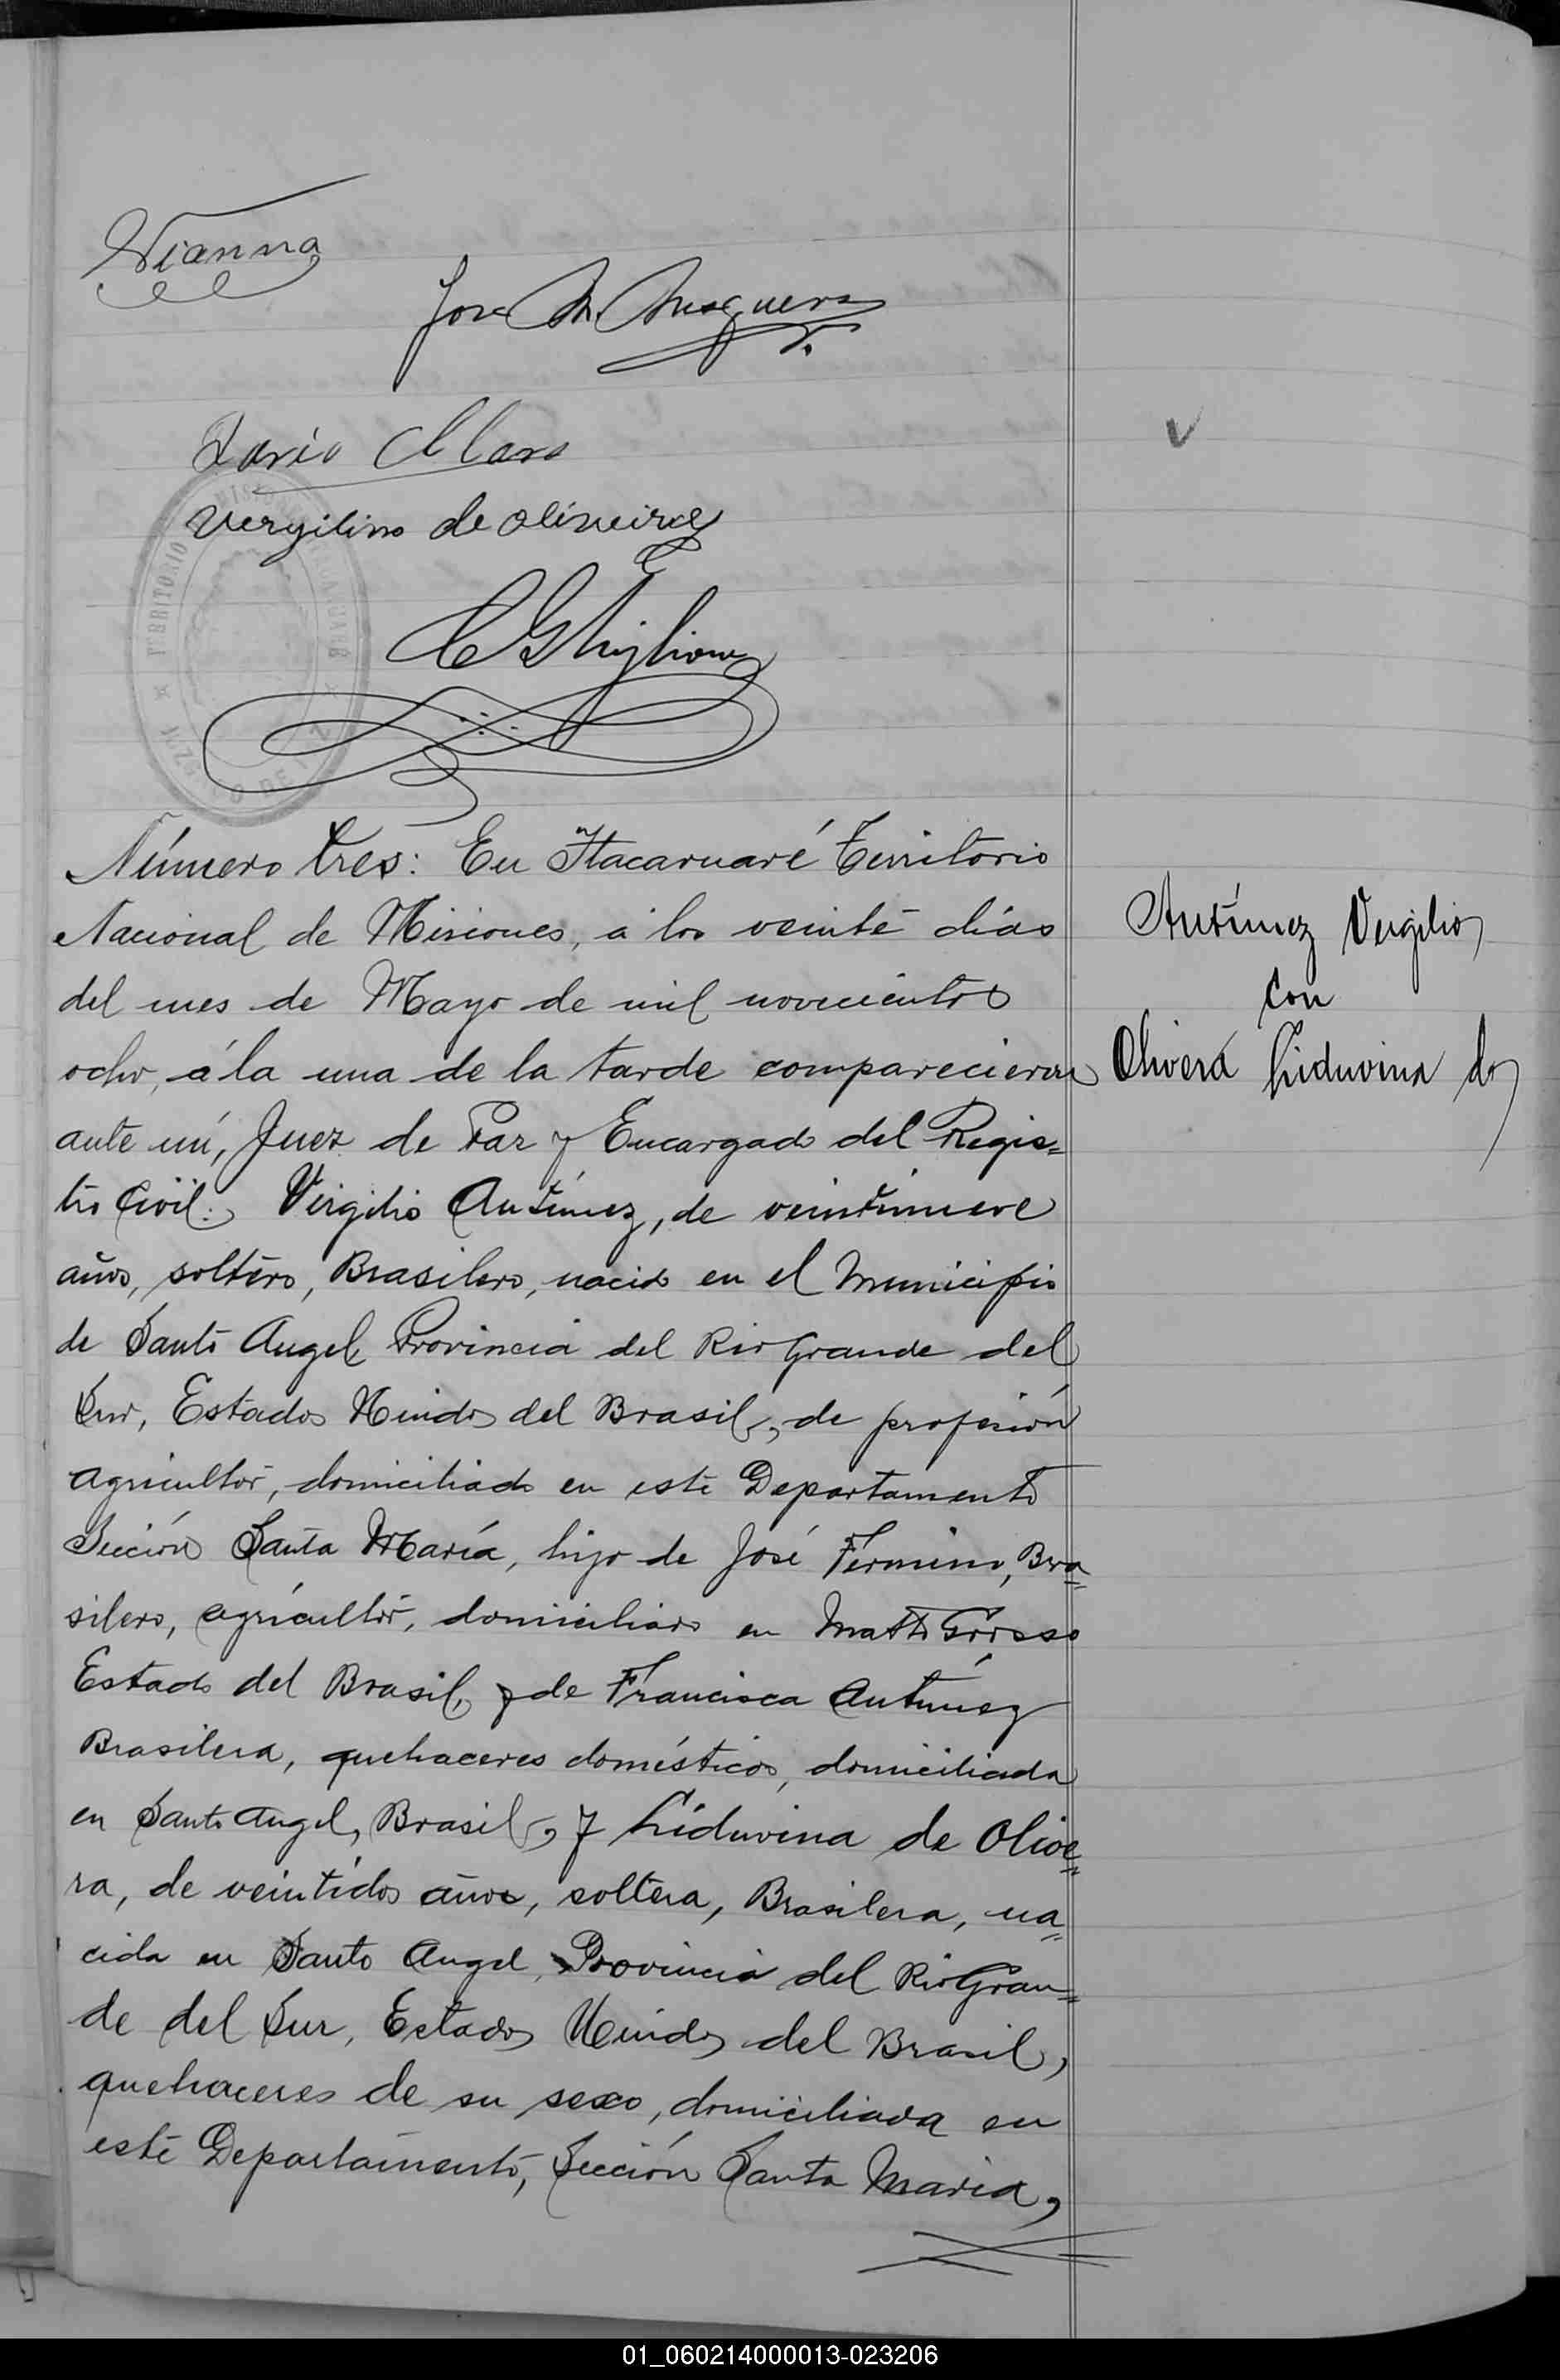 Vianna
José M.
Dario Claro
Vergilino de oliveira
C Ghiglione
TERRITORIO
JUZGADO DE PAZ
Número tres: En Itacaruaré Territorio
Nacional de Misiones, á los veinte días
del mes de Mayo de mil novecientos
ocho, á la una de la tarde comparecieron
ante mí, Juez de Paz y Encargado del Regis=
tro Civil: Virgilio Antúnez, de veintinueve
años, soltero, Brasilero, nacido en el Municipio
de Santo Angel, Provincia del Rio Grande del
Sur, Estados Unidos del Brasil, de profesión
agricultor, domiciliado en este Departamento
Sección Santa María, hijo de José Fermino, Bra=
silero, agricultor, domiciliado en Matto Grosso
Estado del Brasil, y de Francisca Antúnez
Brasilera, quehaceres domésticos, domiciliada
en Santo Angel, Brasil, y Liduvina de Olive=
ra, de veintidos años, soltera, Brasilera, na=
cida en Santo Angel, Provincia del Rio Gran=
de del Sur, Estados Unidos del Brasil,
quehaceres de su sexo, domiciliada en
este Departamento, Sección Santa María,
Antúnez Vergilio
con
Olivera Liduvina de
01_060214000013-023206